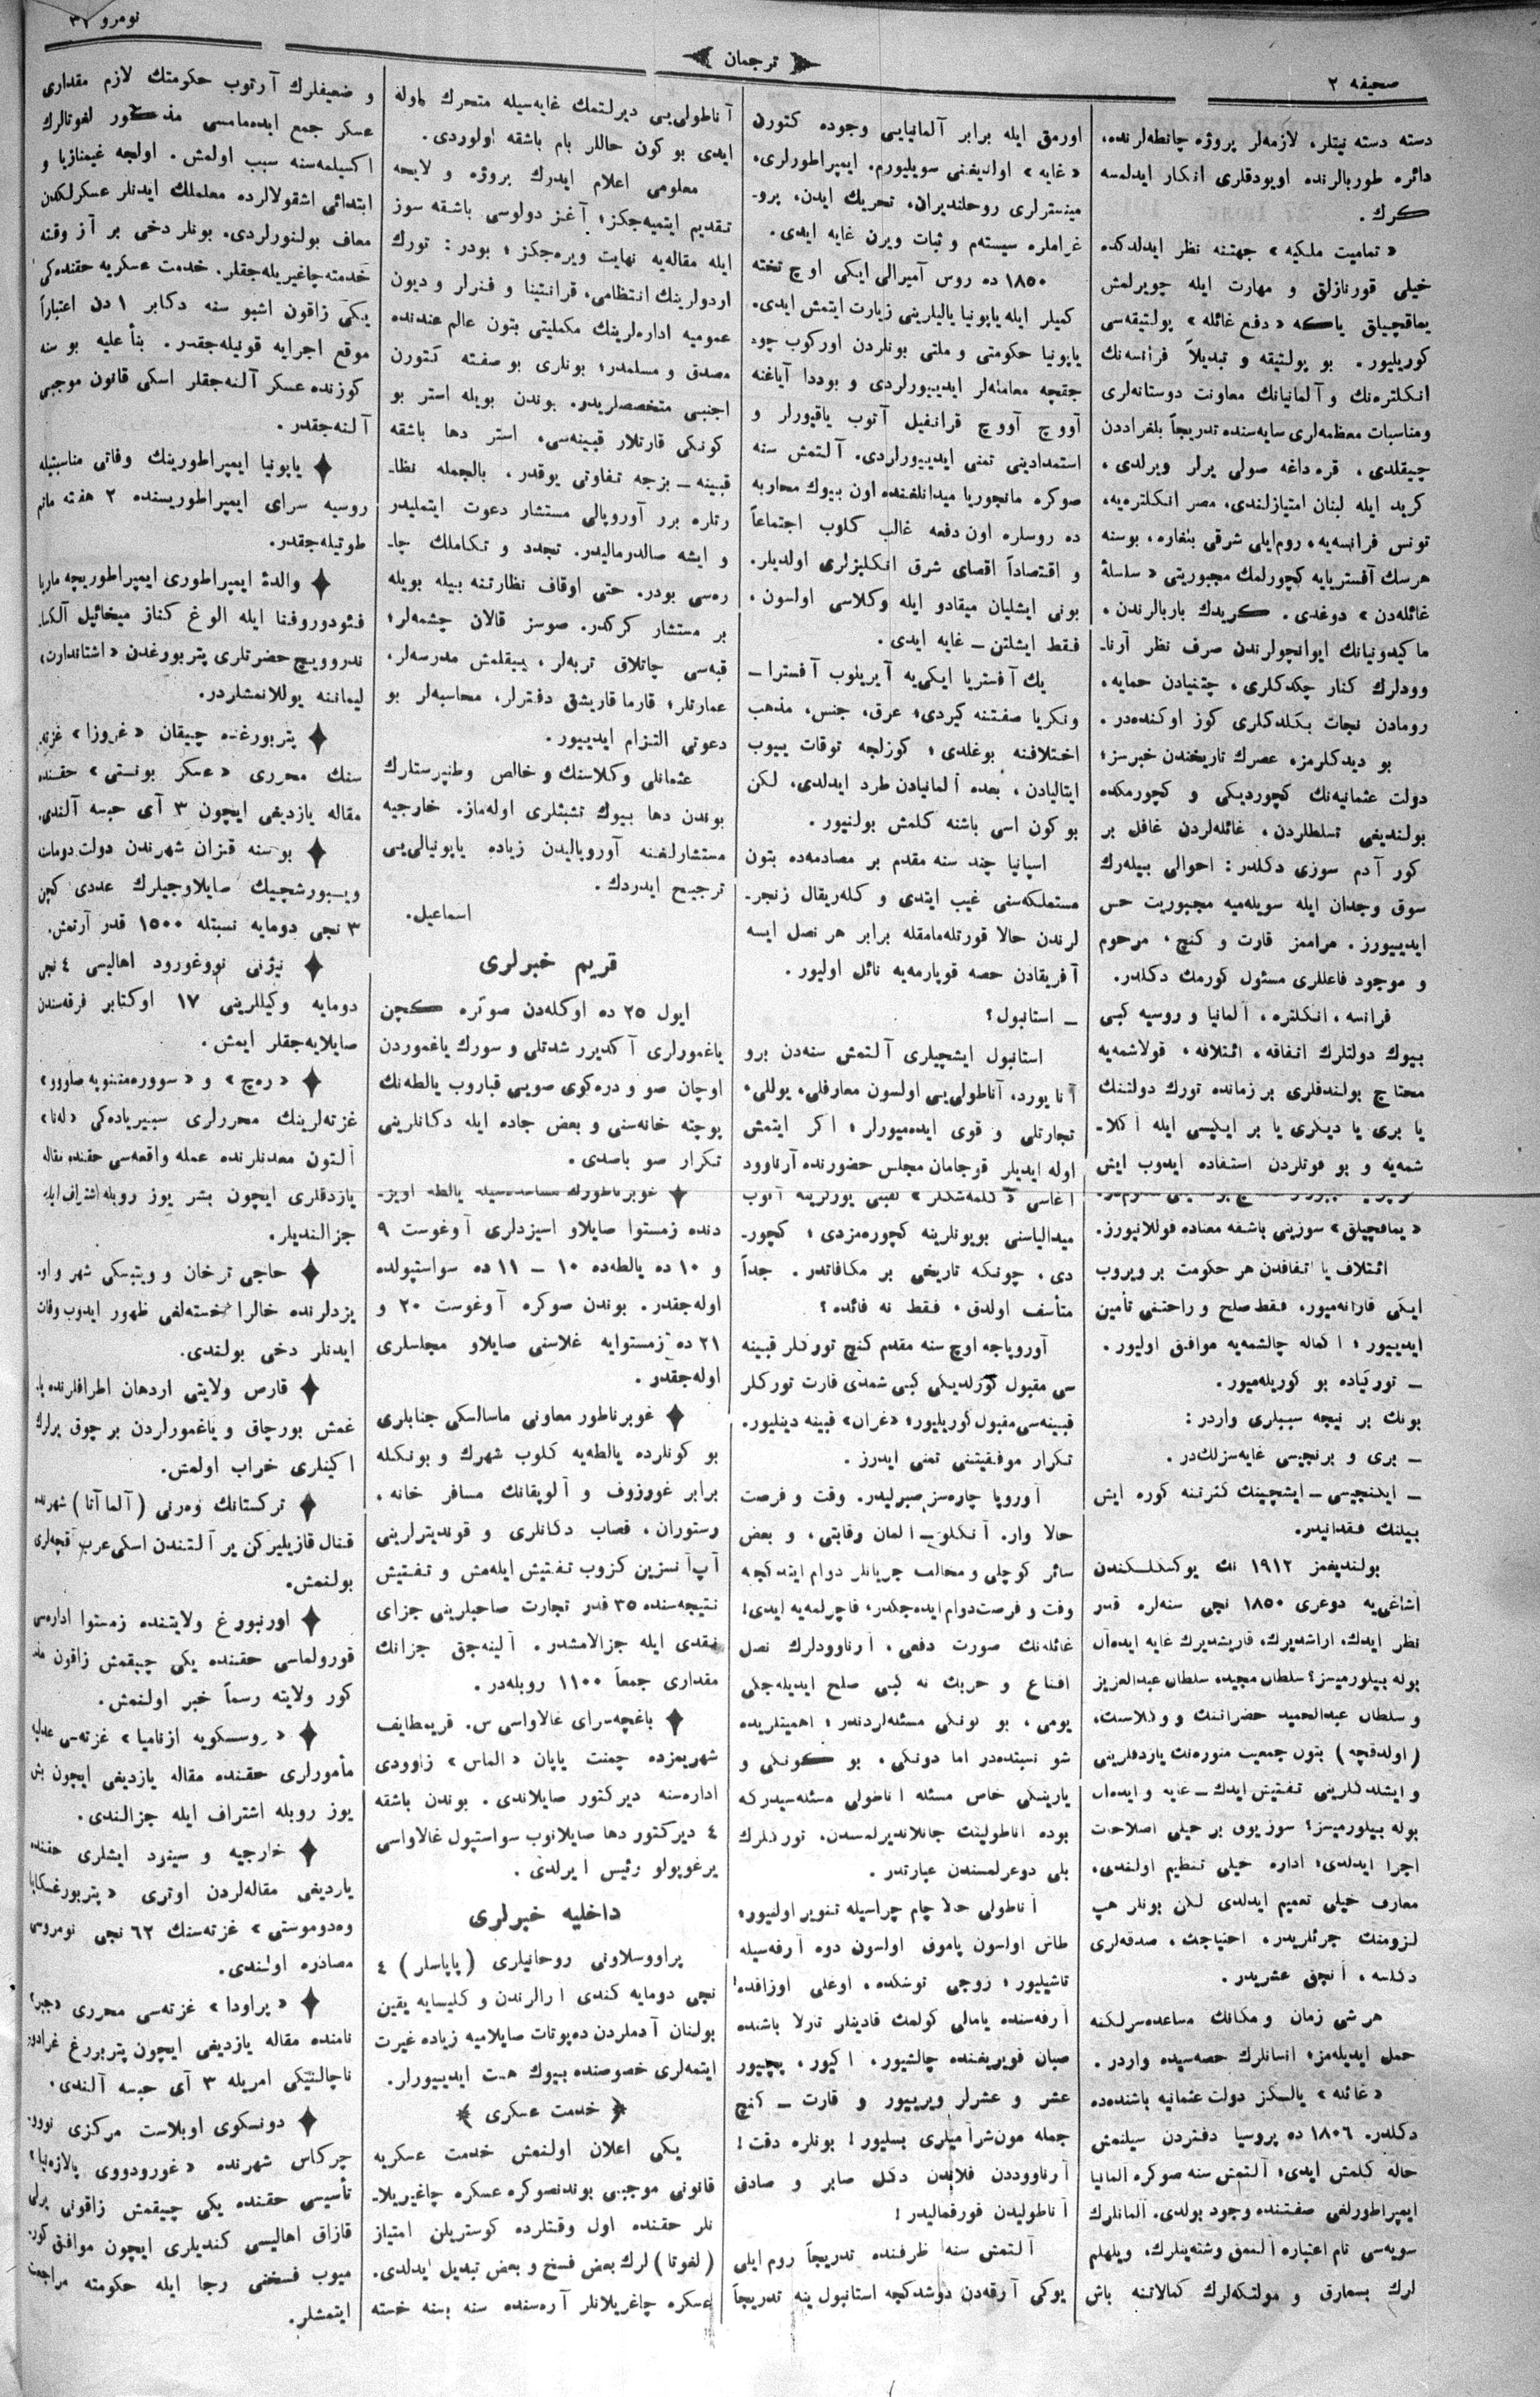 صحیفه ۲
ترجمان
نومرو ۳۱
دسته دسته نیتلر، لازمه‌لر پروژه چانطه‌لرنده،
دائره طوربالرنده اویودقلری انکار ایدلمسه
کرك.
« تمامیت ملکیه » جهتنه نظر ایدلدکده
خیلی قورنازلق و مهارت ایله چویرلمش
یماقچیلق یاکه « دفع غائله » پولتیقه‌سی
کوریلیور. بو پولتیقه و تبدیلاً فرانسه‌نك
انکلتره‌نك و آلمانیانك معاونت دوستانه‌لری
ومناسبات معظمه‌لری سایه‌سنده تدریجاً بلغراددن
چیقلدی، قره داغه صولی یرلر ویرلدی،
کرید ایله لبنان امتیازلندی، مصر انکلتره‌یه،
تونس فرانسه‌یه، روم‌ایلی شرقی بلغاره، بوسنه
هرسك آفستریایه کچورلمك مجبوریتی « سلسلهٔ
غائله‌دن » دوغدی. کریدك باربالرندن،
ماکیدونیانك ایوانچولرندن صرف نظر آرنا-
وودلرك کنار چکدکلری، چتنیادن حمایه،
رومادن نجات بکلدکلری کوز اوکنده‌در.
بو دیدکلرمزه عصرك تاریخندن خبرسز؛
دولت عثمانیه‌نك کچوردیکی و کچورمکده
بولندیغی تسلطلردن، غائله‌لردن غافل بر
کور آدم سوزی دکلدر: احوالی بیله‌رك
سوق وجدان ایله سویله‌میه مجبوریت حس
ایدییورز. مراممز قارت و کنج، مرحوم
و موجود فاعللری مسئول کورمك دکلدر.
فرانسه، انکلتره، آلمانیا و روسیه کبی
بیوك دولتلرك اتفاقه، ائتلافه، قولاشمه‌یه
محتاج بولندقلری بر زمانده تورك دولتنك
یا بری یا دیکری یا بر ایکیسی ایله آکلا-
شمه‌یه و بو قوتلردن استفاده ایدوب ایش
« یماقچیلق » سوزینی باشقه معناده قوللانیورز.
ائتلاف یا اتفاقدن هر حکومت بر ویروب
ایکی قازانه‌میور، فقط صلح و راحتنی تأمین
ایدییور؛ اکماله چالشمه‌یه موافق اولیور.
ــ تورکیاده بو کوریله‌میور.
بونك بر نیچه سببلری واردر:
ــ بری و برنجیسی غایه‌سزلك‌در.
ــ ایکنجیسی ــ ایشچینك کثرتنه کوره ایش
بیلنك فقدانیدر.
بولندیغمز ۱۹۱۲ نك یوکسکلکندن
آشاغی‌یه دوغری ۱۸۵۰ نجی سنه‌لره قدر
نظر ایدك، اراشدیرك، قاریشدیرك غایه ایده‌آل
بوله بیلورمیسز؟ سلطان مجیده سلطان عبدالعزیز
و سلطان عبدالحمید حضراتنك و وکلاسنك،
(اولدقچه) بتون جمعیت منوره‌نك یازدقلرینی
و ایشلدکلرینی تفتیش ایدك ــ غایه و ایده‌آل
بوله بیلورمیسز؟ سوز یوق بر خیلی اصلاحات
اجرا ایدلدی؛ اداره خیلی تنظیم اولندی،
معارف خیلی تعمیم ایدلدی لکن بونلر هپ
لزومنك جزئلریدر، احتیاجك، صدقه‌لری
دکلسه، آنجق عشریدر.
هر شی زمان و مکانك مساعده‌سزلکنه
حمل ایدیله‌مز؛ انسانلرك حصه‌سیده واردر.
« غائله » یالکز دولت عثمانیه باشنده‌ده
دکلدر. ۱۸۰۶ ده پروسیا دفتردن سیلنمش
حاله کلمش ایدی؛ آلتمش سنه صوکره آلمانیا
ایمپراطورلغی صفتنده وجود بولدی. آلمانلرك
سویه‌سی تام اعتباره آلنمق وشتینلرك، ویلهلم
لرك بسمارق و مولتکه‌لرك کمالاتنه باش
اورمق ایله برابر آلمانیایی وجوده کتورن
« غایه » اولدیغنی سویلیورم. ایمپراطورلری،
مینسترلری روحلندیران، تحریك ایدن، پرو-
غراملره سیستم و ثبات ویرن غایه ایدی.
۱۸۵۰ ده روس آمیرالی ایکی اوچ تخته
کمیلر ایله یاپونیا یالیلرینی زیارت ایتمش ایدی.
یاپونیا حکومتی و ملتی بونلردن اورکوب چو-
جقچه معامله‌لر ایدییورلردی و بوددا آیاغنه
آووچ آووچ قرانفیل آتوب یاقیورلر و
استمدادینی تمنی ایدییورلردی. آلتمش سنه
صوکره مانچوریا میدانلغنده اون بیوك محاربه
ده روسلره اون دفعه غالب کلوب اجتماعاً
و اقتصاداً اقصای شرق انکلیزلری اولدیلر.
بونی ایشلیان میقادو ایله وکلاسی اولسون،
فقط ایشلتن ــ غایه ایدی.
یك آفستریا ایکی‌یه آیریلوب آفسترا ــ
ونکریا صفتنه کیردی؛ عرق، جنس، مذهب
اختلافنه بوغلدی؛ کوزلجه توقات ییوب
ایتالیادن، بعده آلمانیادن طرد ایدلدی، لکن
بو کون اسی باشنه کلمش بولنیور.
اسپانیا چند سنه مقدم بر مصادمه‌ده بتون
مستملکه‌سنی غیب ایتدی و کله‌ریقال زنجر-
لرندن حالا قورتله‌مامقله برابر هر نصل ایسه
آفریقادن حصه قوپارمه‌یه نائل اولیور.
ــ استانبول؟
استانبول ایشچیلری آلتمش سنه‌دن برو
آنا یورد، آناطولی‌یی اولسون معارفلی، یوللی،
تجارتلی و قوی ایده‌میورلر؛ اکر ایتمش
اوله ایدیلر قوجامان مجلس حضورنده آرناوود
آغاسی « کلمه‌شکلر » لقبنی یوزلرینه آتوب
میدالیاسنی بویونلرینه کچوره‌مزدی؛ کچور-
دی. چونکه تاریخی بر مکافاتدر. جداً
متأسف اولدق، فقط نه فائده؟
آوروپاجه اوچ سنه مقدم کنج تورکلر قبینه
سی مقبول کورلدیکی کبی شمدی قارت تورکلر
قبینه‌سی مقبول کوریلیور؛ «غران» قبینه دینلیور.
تکرار موفقیتنی تمنی ایدرز.
آوروپا چاره‌سز صبرلیدر. وقت و فرصت
حالا وار. آنکلو ــ آلمان رقابتی، و بعض
سائر کوچلی و مخالف جریانلر دوام ایتدکجه
وقت و فرصت دوام ایده‌جکدر، قاچرلمه‌یه ایدی!
غائله‌نك صورت دفعی، آرناوودلرك نصل
اقناع و حربك نه کبی صلح ایدیله‌جکی
یومی، بو کونکی مسئله‌لردندر؛ اهمیتلریده
شو نسبتده‌در اما دونکی، بو کونکی و
یارینکی خاص مسئله آناطولی مسئله‌سیدرکه
بوده آناطولینك جانلاندیرلمسندن، تورکلرك
بلی دوغرلمسندن عبارتدر.
آناطولی حالا چام چراسیله تنویر اولنیور؛
طاش اولسون پاموق اولسون دوه آرقه‌سیله
تاشیلیور؛ زوجی توشکده، اوغلی اوزاقده!
آرقه‌سنده یامالی کولمك قادینلر تارلا باشنده
صبان قویریغنده چالشیور، اکیور، بیچیور
عشر و عشرلر ویرییور و قارت ــ کنج
جمله مون‌شرآمیلری بسلیور! بونلره دقت!
آرناووددن فلاندن دکل صابر و صادق
آناطولیدن قورقمالیدر!
آلتمش سنه ظرفنده تدریجاً روم ایلی
یوکی آرقه‌دن دوشدکچه استانبول ینه تدریجاً
آناطولی‌یی دیرلتمك غایه‌سیله متحرك اوله
ایدی بو کون حاللر بام باشقه اولوردی.
معلومی اعلام ایدرك پروژه و لایحه
تقدیم ایتمیه‌جکز؛ آغز دولوسی باشقه سوز
ایله مقاله‌یه نهایت ویره‌جکز؛ بودر: تورك
اردولرینك انتظامی، قرانتینا و فنرلر و دیون
عمومیه اداره‌لرینك مکملیتی بتون عالم عندنده
مصدق و مسلمدر؛ بونلری بو صفته کتورن
اجنبی متخصصلریدر. بوندن بویله استر بو
کونکی قارتلار قبینه‌سی، استر دها باشقه
قبینه ــ بزجه تفاوتی یوقدر، بالجمله نظا-
رتلره برر آوروپالی مستشار دعوت ایتملیدر
و ایشه صالدرمالیدر. تجدد و تکاملك چا-
ره‌سی بودر. حتی اوقاف نظارتنه بیله بویله
بر مستشار کرکدر. صوسز قالان چشمه‌لر؛
قبه‌سی چاتلاق تربه‌لر، ییقلمش مدرسه‌لر،
عمارتلر؛ قارما قاریشق دفترلر، محاسبه‌لر بو
دعوتی التزام ایدییور.
عثمانلی وکلاسنك و خالص وطنپرستلرك
بوندن دها بیوك تشبثلری اوله‌ماز. خارجیه
مستشارلغنه آوروپالیدن زیاده یاپونیالی‌یی
ترجیح ایدردك.
اسماعیل.
قریم خبرلری
ایول ۲۵ ده اوکله‌دن صوکره کچن
یاغمورلری آکدیرر شدتلی و سورك یاغموردن
اوچان صو و دره‌کوی صویی قباروب یالطه‌نك
پوچته خانه‌سنی و بعض جاده ایله دکانلرینی
تکرار صو باصدی.
✦ غوبرناطورك مساعده‌سیله یالطه اویز-
دنده زمستوا صایلاو اسیزدلری آوغوست ۹
و ۱۰ ده یالطه‌ده ۱۰ ــ ۱۱ ده سواستپولده
اوله‌جقدر. بوندن صوکره آوغوست ۲۰ و
۲۱ ده زمستوایه غلاسنی صایلاو مجلسلری
اوله‌جقدر.
✦ غوبرناطور معاونی ماسالسکی جنابلری
بو کونلرده یالطه‌یه کلوب شهرك و بونکله
برابر غورزوف و آلوپقانك مسافر خانه،
رستوران، قصاب دکانلری و قوندیترلرینی
آپ‌آنسزین کزوب تفتیش ایله‌مش و تفتیش
نتیجه‌سنده ۳۵ قدر تجارت صاحبلرینی جزای
نقدی ایله جزالامشدر. آلینه‌جق جزانك
مقداری جمعاً ۱۱۰۰ روبله‌در.
✦ باغچه‌سرای غالاواسی س. قریمطایف
شهریمزده چمنت یاپان « الماس » زاوودی
اداره‌سنه دیرکتور صایلاندی. بوندن باشقه
۴ دیرکتور دها صایلانوب سواستپول غالاواسی
یرغوپولو رئیس آیرلدی.
داخلیه خبرلری
پراووسلاونی روحانیلری (پاپاسلر) ۴
نجی دومایه کندی آرالرندن و کلیسایه یقین
بولنان آدملردن ده‌پوتات صایلامیه زیاده غیرت
ایتمه‌لری خصوصنده بیوك همت ایدییورلر.
﴿ خدمت عسکری ﴾
یکی اعلان اولنمش خدمت عسکریه
قانونی موجبی بوندنصوکره عسکره چاغیریلا-
نلر حقنده اول وقتلرده کوستریلن امتیاز
(لغوتا) لرك بعض فسخ و بعض تبدیل ایدلدی.
عسکره چاغریلانلر آره‌سنده سنه بسنه خسته
و ضعیفلرك آرتوب حکومتك لازم مقداری
عسکر جمع ایده‌مامسی مذکور لغوتالرك
اکسیلمه‌سنه سبب اولمش. اولجه غیمنازیا و
ابتدائی اشقولالرده معلملك ایدنلر عسکرلکدن
معاف بولنورلردی. بونلر دخی بر آز وقته
خدمته چاغیریله‌جقلر. خدمت عسکریه حقنده‌کی
یکی زاقون اشبو سنه دکابر ۱ دن اعتباراً
موقع اجرایه قونیله‌جقدر. بنأ علیه بو سنه
کوزنده عسکر آلنه‌جقلر اسکی قانون موجبی
آلنه‌جقدر.
✦ یاپونیا ایمپراطورینك وفاتی مناسبتیله
روسیه سرای ایمپراطوریسنده ۲ هفته ماتم
طوتیله‌جقدر.
✦ والدهٔ ایمپراطوری ایمپراطوریچه ماریا
فئودوروفنا ایله الوغ کناز میخائیل آلکسا-
ندروویچ حضرتلری پتربورغدن « اشتاندارت»
لیماننه یوللانمشلردر.
✦ پتربورغده چیقان « غروزا » غزته-
سنك محرری « عسکر بونستی » حقنده
مقاله یازدیغی ایچون ۳ آی حبسه آلندی.
✦ بو سنه قزان شهرندن دولت دوماسنه
ویبورشچیك صایلاوجیلرك عددی کچن
۳ نجی دومایه نسبتله ۱۵۰۰ قدر آرتمش.
✦ نیژنی نووغورود اهالیسی ۴ نجی
دومایه وکیللرینی ۱۷ اوکتابر فرقه‌سندن
صایلایه‌جقلر ایمش.
✦ « ره‌چ » و « سووره‌مننویه صلوو »
غزته‌لرینك محررلری سیبیریاده‌کی « له‌نا »
آلتون معدنلرنده عمله واقعه‌سی حقنده مقاله
یازدقلری ایچون بشر یوز روبله اشتراف ایله
جزالندیلر.
✦ حاجی ترخان و ویتبسکی شهر و او-
یزدلرنده خالرا خسته‌لغی ظهور ایدوب وفات
ایدنلر دخی بولندی.
✦ قارص ولایتی اردهان اطرافلرنده یا-
غمش بورچاق و یاغمورلردن بر چوق یرلرك
اکینلری خراب اولمش.
✦ ترکستانك وه‌رنی (آلما آتا) شهرنده
قنال قازیلیرکن یر آلتندن اسکی عرب آقچه‌لری
بولنمش.
✦ اورنبورغ ولایتنده زمستوا اداره‌سی
قورولماسی حقنده یکی چیقمش زاقون مذ
کور ولایته رسماً خبر اولنمش.
✦ « روسسکویه ازنامیا » غزته‌سی عدلیه
مأمورلری حقنده مقاله یازدیغی ایچون بش
یوز روبله اشتراف ایله جزالندی.
✦ خارجیه و سینود ایشلری حقنده
یازدیغی مقاله‌لردن اوتری « پتربورغسکایا
وه‌دوموستی » غزته‌سنك ۶۲ نجی نومروسی
مصادره اولندی.
✦ « پراودا » غزته‌سی محرری «جبر»
نامنده مقاله یازدیغی ایچون پتربورغ غرادو-
ناچالنیکی امریله ۳ آی حبسه آلندی.
✦ دونسکوی اوبلاست مرکزی نوو-
چرکاس شهرنده « غورودووی پالاژه‌نیا »
تأسیسی حقنده یکی چیقمش زاقونی یرلی
قازاق اهالیسی کندیلری ایچون موافق کور-
میوب فسخنی رجا ایله حکومته مراجعت
ایتمشلر.